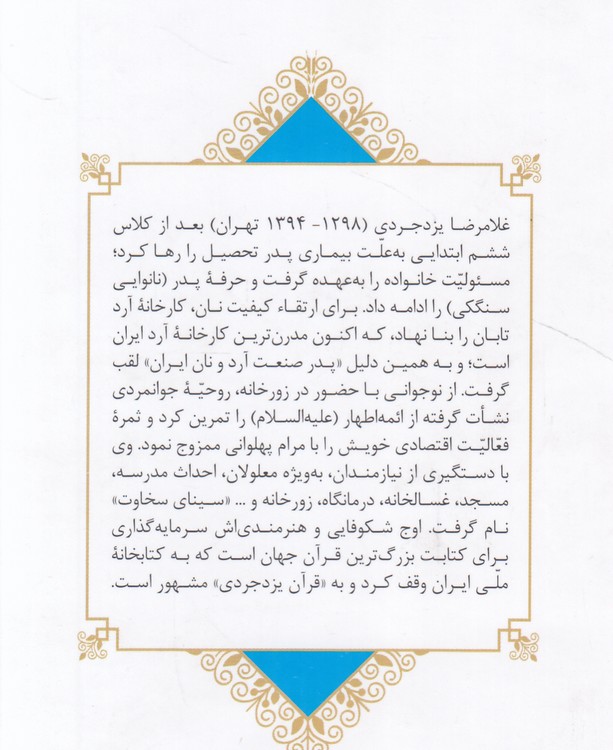 غلامرضا یزدجردی (۱۲۹۸- ۱۳۹۴ تهران) بعد از کلاس
ششم ابتدایی به‌علّت بیماری پدر تحصیل را رها کرد؛
مسئولیّت خانواده را به‌عهده گرفت و حرفهٔ پدر (نانوایی
سنگکی) را ادامه داد. برای ارتقاء کیفیت نان، کارخانهٔ آرد
تابان را بنا نهاد، که اکنون مدرن‌ترین کارخانهٔ آرد ایران
است؛ و به همین دلیل «پدر صنعت آرد و نان ایران» لقب
گرفت. از نوجوانی با حضور در زورخانه، روحیّهٔ جوانمردی
نشأت گرفته از ائمه‌اطهار (علیه‌السلام) را تمرین کرد و ثمرهٔ
فعّالیّت اقتصادی خویش را با مرام پهلوانی ممزوج نمود. وی
با دستگیری از نیازمندان، به‌ویژه معلولان، احداث مدرسه،
مسجد، غسالخانه، درمانگاه، زورخانه و ... «سینای سخاوت»
نام گرفت. اوج شکوفایی و هنرمندی‌اش سرمایه‌گذاری
برای کتابت بزرگ‌ترین قرآن جهان است که به کتابخانهٔ
ملّی ایران وقف کرد و به «قرآن یزدجردی» مشهور است.